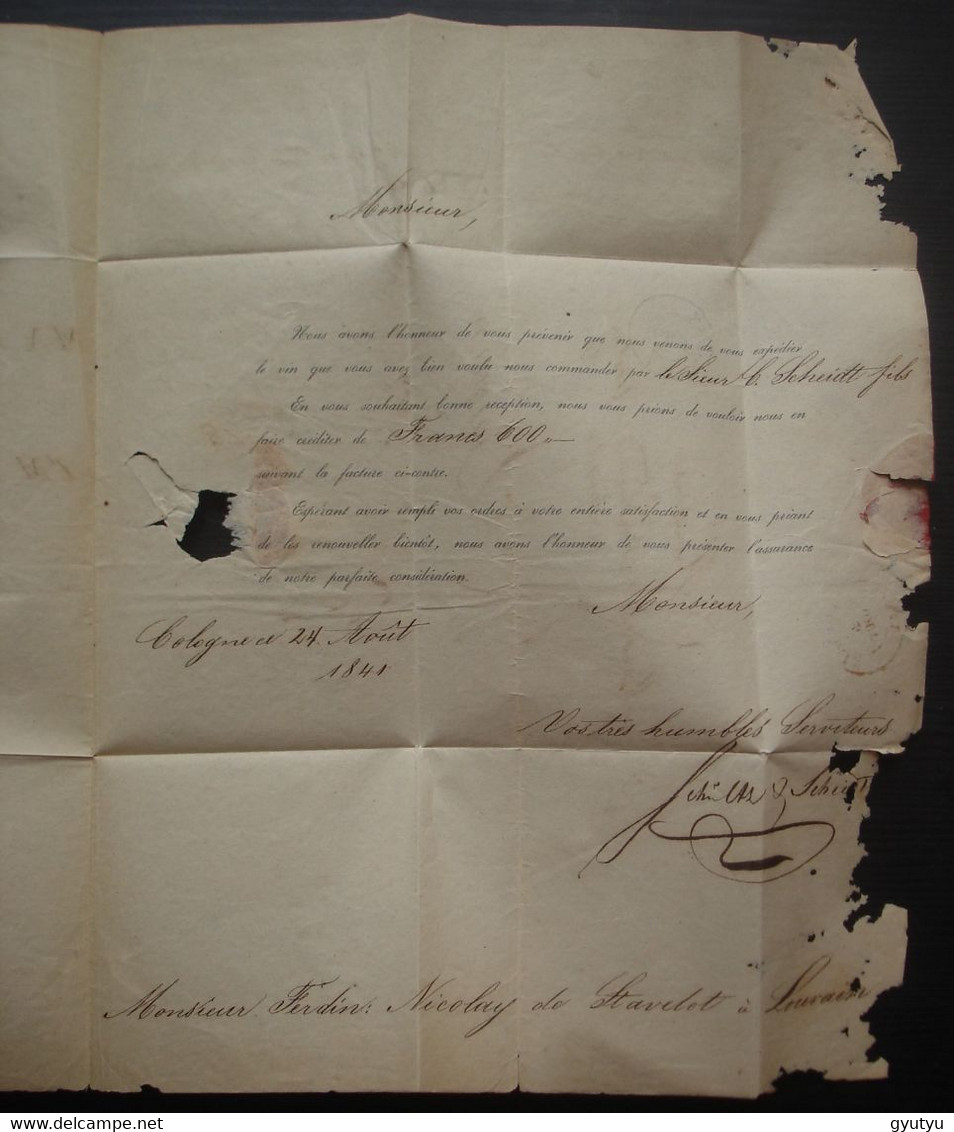 Monsieur,
Nous avons l'honneur de vous prévenir que nous venons de vous expédier
le vin que vous avez bien voulu nous commander par le Sieur C. Scheidt fils
En vous souhaitant bonne réception, nous vous prions de vouloir nous en
faire créditer de Francs 600,,—
suivant la facture ci-contre.
Espérant avoir rempli vos ordres à votre entière satisfaction et en vous priant
de les renouveller bientôt, nous avons l'honneur de vous présenter l'assurance
de notre parfaite considération.
Monsieur,
Cologne ce 24. Août
1841
Vos très humbles Serviteurs
Schültz & Scheidt
Monsieur Ferdin: Nicolay de Stavelot à Louvain
gyutyu